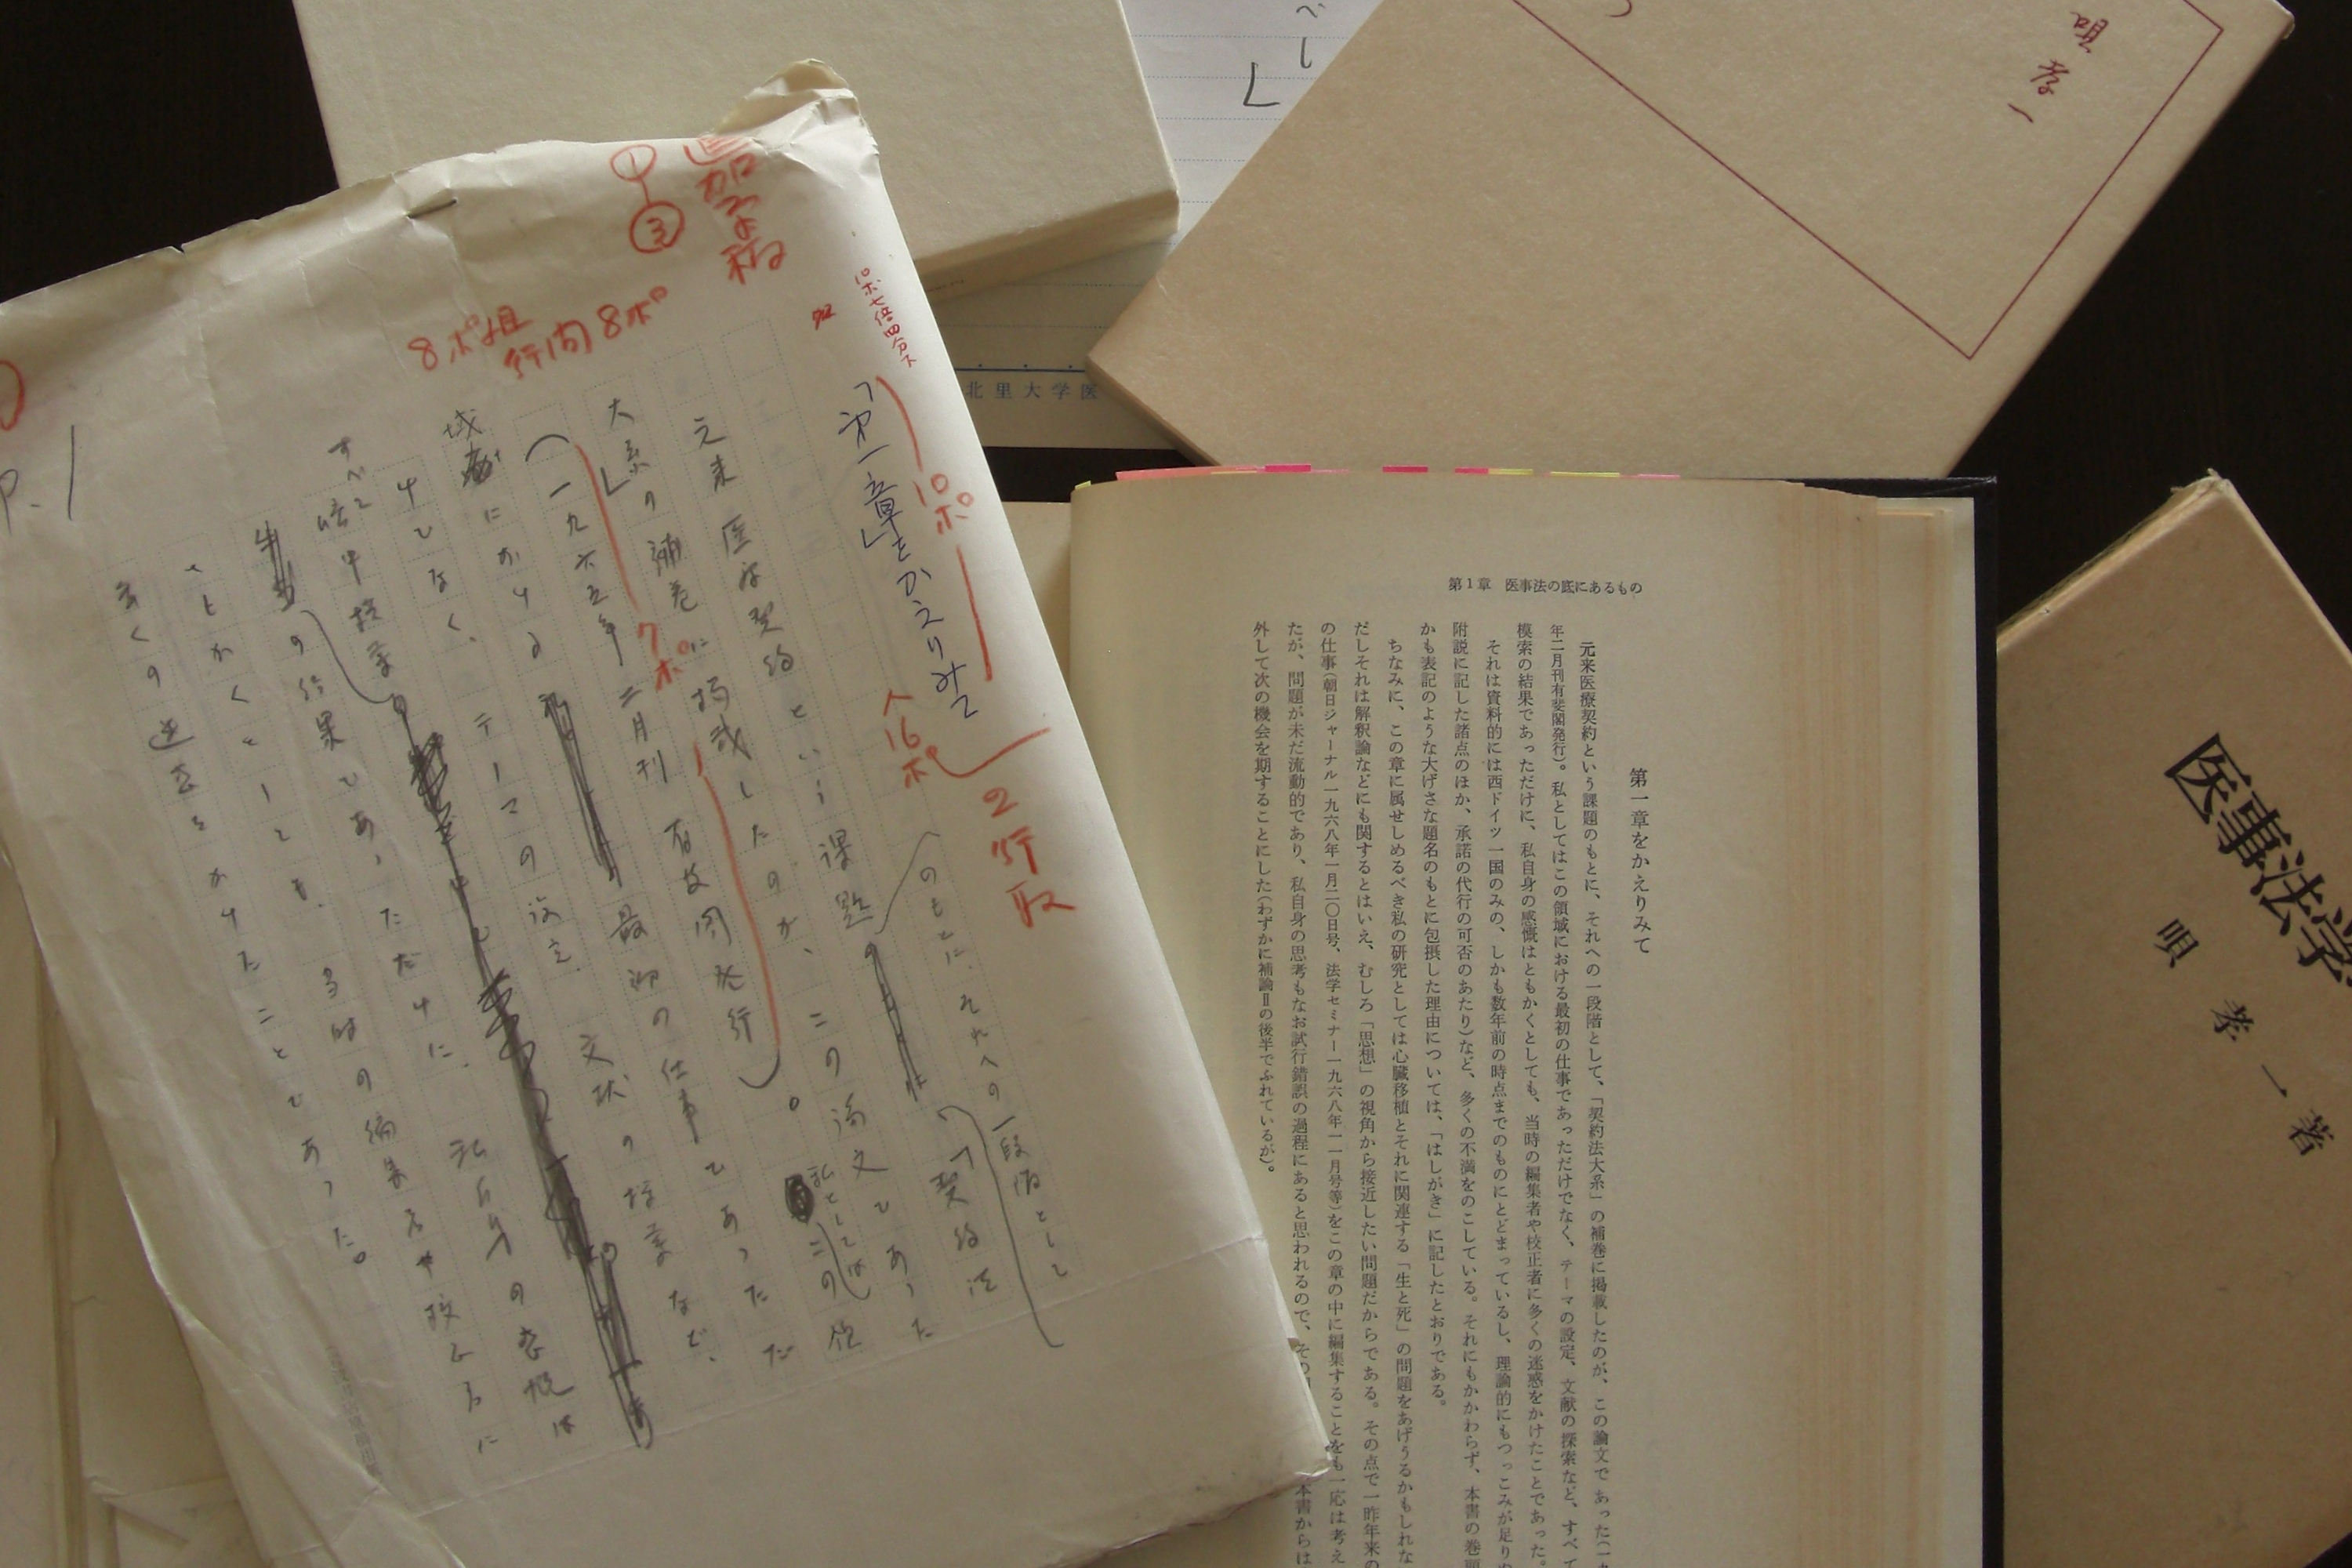 追加原稿
8ポ組
行間8ポ
10ポ七倍四分ス
10ポ
「第一章」をかえりみて
16ポ
2行取
のもとに、それへの一段階として
元来医療契約という課題
「契約法
大系」の補巻に掲載したのが、この論文であった
(一九六五年二月刊有斐閣発行)。私としてはこの領
7ポ
域における
最初の仕事であっただ
けでなく、テーマの設定、文献の探索など、
すべて
模索の結果であっただけに、私自身の感慨は
ともかくとしても、当時の編集者や校正者に
多くの迷惑をかけたことであった。
P.1
べし」
北里大学医
唄孝一
第1章 医事法の底にあるもの
第一章をかえりみて
元来医療契約という課題のもとに、それへの一段階として、「契約法大系」の補巻に掲載したのが、この論文であった(一九
年二月刊有斐閣発行)。私としてはこの領域における最初の仕事であっただけでなく、テーマの設定、文献の探索など、すべて
模索の結果であっただけに、私自身の感慨はともかくとしても、当時の編集者や校正者に多くの迷惑をかけたことであった。
それは資料的には西ドイツ一国のみの、しかも数年前の時点までのものにとどまっているし、理論的にもつっこみが足り
附説に記した諸点のほか、承諾の代行の可否のあたり)など、多くの不満をのこしている。それにもかかわらず、本書の巻頭
かも表記のような大げさな題名のもとに包摂した理由については、「はしがき」に記したとおりである。
ちなみに、この章に属せしめるべき私の研究としては心臓移植とそれに関連する「生と死」の問題をあげうるかもしれな
だしそれは解釈論などにも関するとはいえ、むしろ「思想」の視角から接近したい問題だからである。その点で一昨年来の
の仕事(朝日ジャーナル一九六八年一月二〇日号、法学セミナー一九六八年一一月号等)をこの章の中に編集することをも一応は考え
たが、問題が未だ流動的であり、私自身の思考もなお試行錯誤の過程にあると思われるので、その
本書からは
外して次の機会を期することにした(わずかに補論Ⅱの後半でふれているが)。
医事法学
唄孝一著